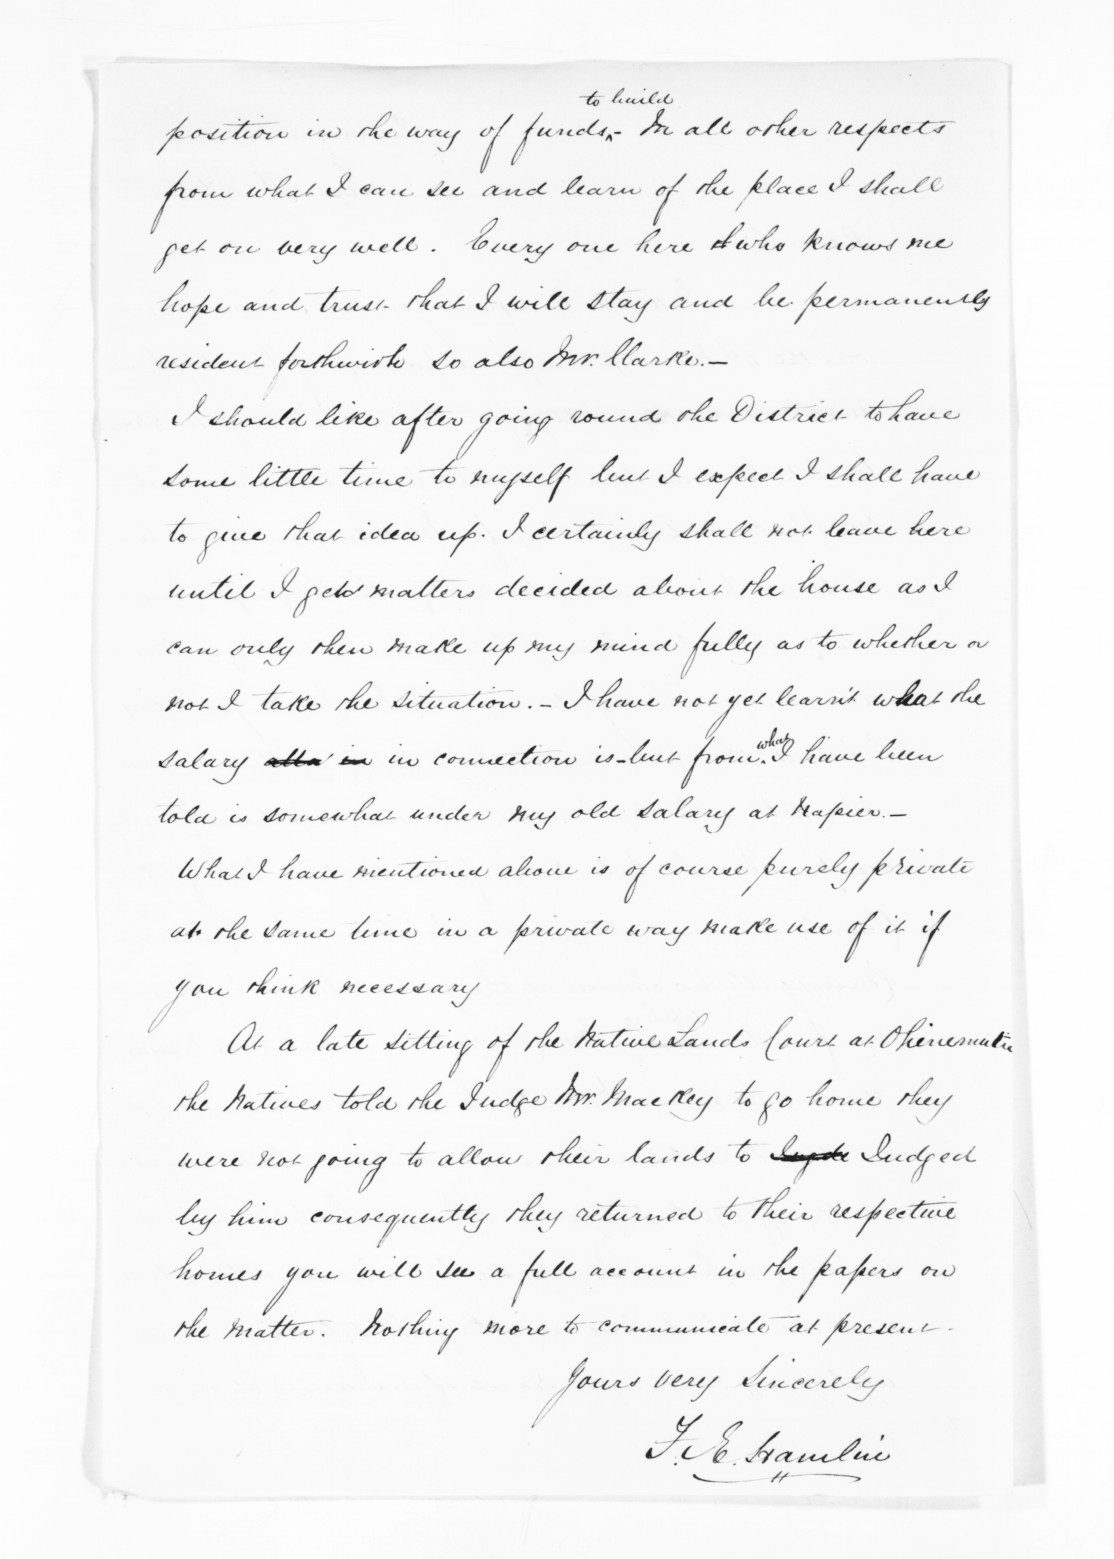 to build
position in the way of funds - In all other respects
from what I can see and learn of the place I shall
get on very well. Every one here who knows me
hope and trust that I will stay and be permanently
resident forthwith so also Mr. Clarke. —
I should like after going round the District to have
some little time to myself but I expect I shall have
to give that idea up. I certainly shall not leave here
until I get matters decided about the house as I
can only then make up my mind fully as to whether or
not I take the situation. — I have not yet learn't what the
what
salary in connection is - but from I have been
told is somewhat under my old salary at Napier. —
What I have mentioned above is of course purely private
at the same time in a private way make use of it if
you think necessary
At a late sitting of the Native Lands Court at Ohinemutu
the Natives told the Judge Mr. Mackey to go home they
were not going to allow their lands to Judged
by him consequently they returned to their respective
homes you will see a full account in the papers on
the matter. Nothing more to communicate at present.
Yours very Sincerely
F. E. Hamlin